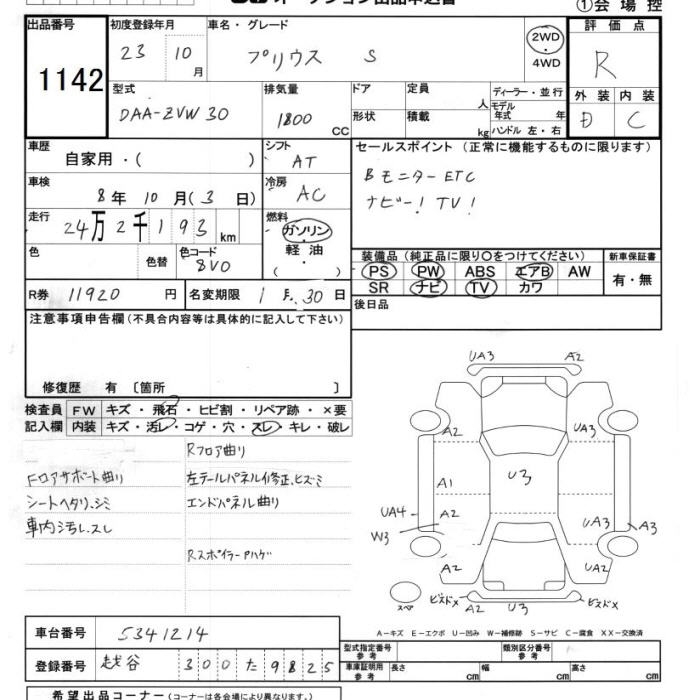 オークション出品申込書
①会場控
出品番号
1142
初度登録年月
23 10月
車名・グレード
プリウス S
2WD
4WD
評価点
R
外装 内装
D C
型式
DAA-ZVW30
排気量
1800 CC
ドア
形状
定員 人
積載 kg
ディーラー・並行
モデル年式 年
ハンドル 左・右
車歴
自家用・( )
シフト
AT
セールスポイント (正常に機能するものに限ります)
BモニターETC
ナビー! TV!
車検
8年10月(3日)
冷房
AC
走行
24万2千193km
燃料
ガソリン・軽油・( )
色
色替
色コード
8V0
装備品 (純正品に限り○をつけてください)
PS PW ABS エアB AW
SR ナビ TV カワ
新車保証書
有・無
R券 11920円
名変期限 1月30日
後日品
注意事項申告欄(不具合内容等は具体的に記入して下さい)
修復歴 有 〔箇所 〕
検査員記入欄
FW キズ・飛石・ヒビ割・リペア跡・×要
内装 キズ・汚レ・コゲ・穴・スレ・キレ・破レ
Rフロア曲り
Fロアサポート曲り
左テールパネル修正、ヒズミ
シートヘタリ、シミ
エンドパネル曲り
車内汚レ、スレ
Rスポイラーハゲ
UA3 A2
A2 UA3
U3
A1
UA4 A2
W3
UA3 A3
A2 UA2
ビスドメ A2 U3 ビスドメ
スペア
A-キズ E-エクボ U-凹み W-補修跡 S-サビ C-腐食 XX-交換済
車台番号
5341214
登録番号
越谷 300 た 9825
型式指定番号 参考
類別区分番号 参考
車庫証明用 参考
長さ cm
幅 cm
高さ cm
希望出品コーナー(コーナーは各会場により異なります。)